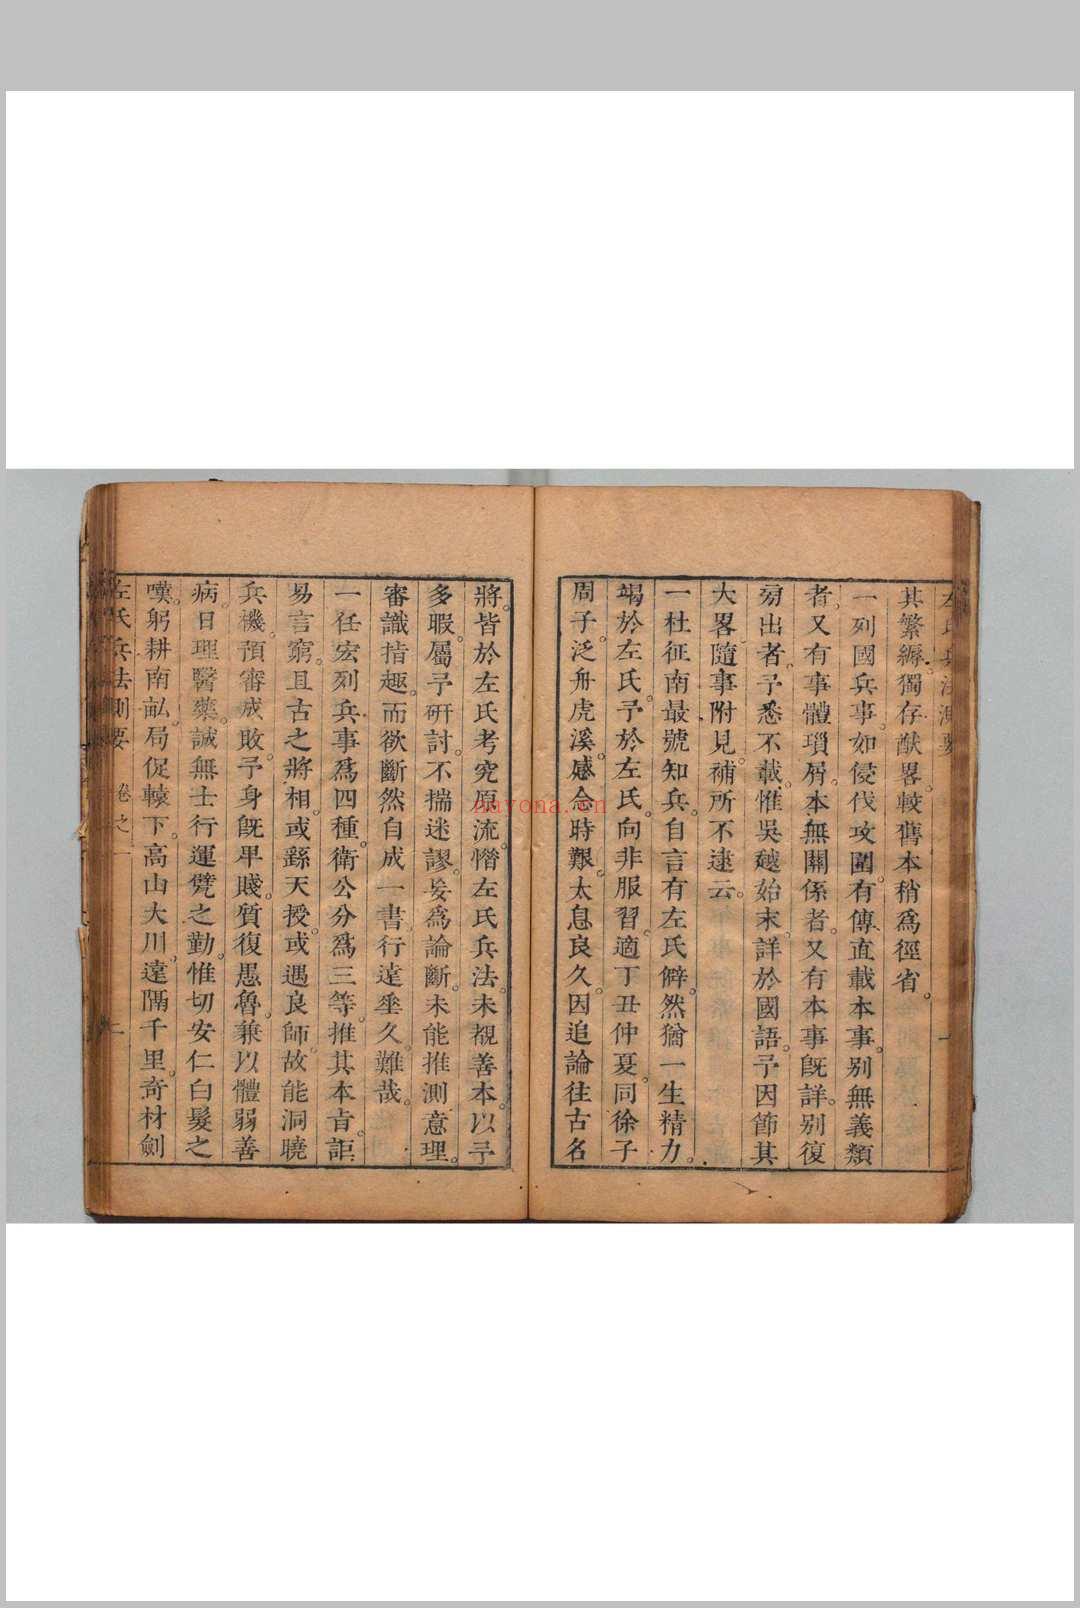 左氏兵法測要
其繁縟。獨存猷畧。較舊本稍爲徑省。
一列國兵事。如侵伐攻圍。有傳直載本事。别無義類
者。又有事體瑣屑。本無關係者。又有本事旣詳。别復
旁出者。予悉不載。惟吳越始末。詳於國語。予因節其
大畧。隨事附見。補所不逮云。
一杜征南最號知兵。自言有左氏癖。然猶一生精力。
竭於左氏。予於左氏。向非服習。適丁丑仲夏。同徐子
周子。泛舟虎溪。感合時艱。太息良久。因追論往古名
將。皆於左氏考究原流。憯左氏兵法。未覩善本。以予
多暇。屬予研討。不揣迷謬。妄爲論斷。未能推測意理。
審識指趣。而欲斷然自成一書。行遠垂久。難哉。
一任宏列兵事爲四種。衛公分爲三等。推其本旨。詎
易言窮。且古之將相。或繇天授。或遇良師。故能洞曉
兵機。預審成敗。予身旣卑賤。質復愚魯。兼以體弱善
病。日理醫藥。誠無士行運甓之勤。惟切安仁白髮之
嘆。躬耕南畝。局促轅下。高山大川。遠隔千里。奇材劍
左氏兵法測要 卷之一 二
nayona.cn